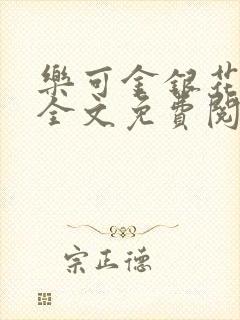 樂可金銀花
全文免費閱
宗正德